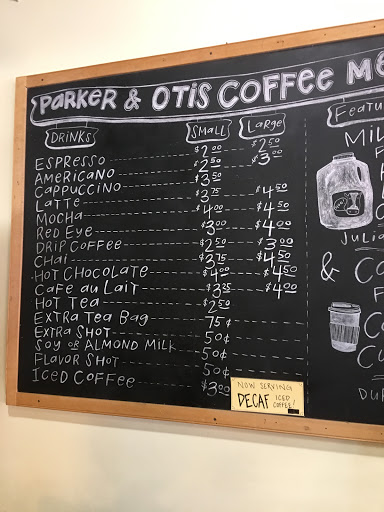 PARKER & OTIS COFFEE ME
DRINKS SMALL LARGE
ESPRESSO $2.00 $2.50
AMERICANO $2.50 $3.00
CAPPUCCINO $3.50
LATTE $3.75 $4.50
MOCHA $4.00 $4.50
RED EYE $3.00 $4.00
DRIP COFFEE $2.50 $3.00
CHAI $3.75 $4.50
HOT CHOCOLATE $4.00 $4.50
CAFE AU LAIT $3.25 $4.00
HOT TEA $2.50
EXTRA TEA BAG 75¢
EXTRA SHOT 50¢
SOY OR ALMOND MILK 50¢
FLAVOR SHOT 50¢
ICED COFFEE $3.00
NOW SERVING
DECAF ICED COFFEE!
FEATU
MIL
JULIA
& CO
DUR